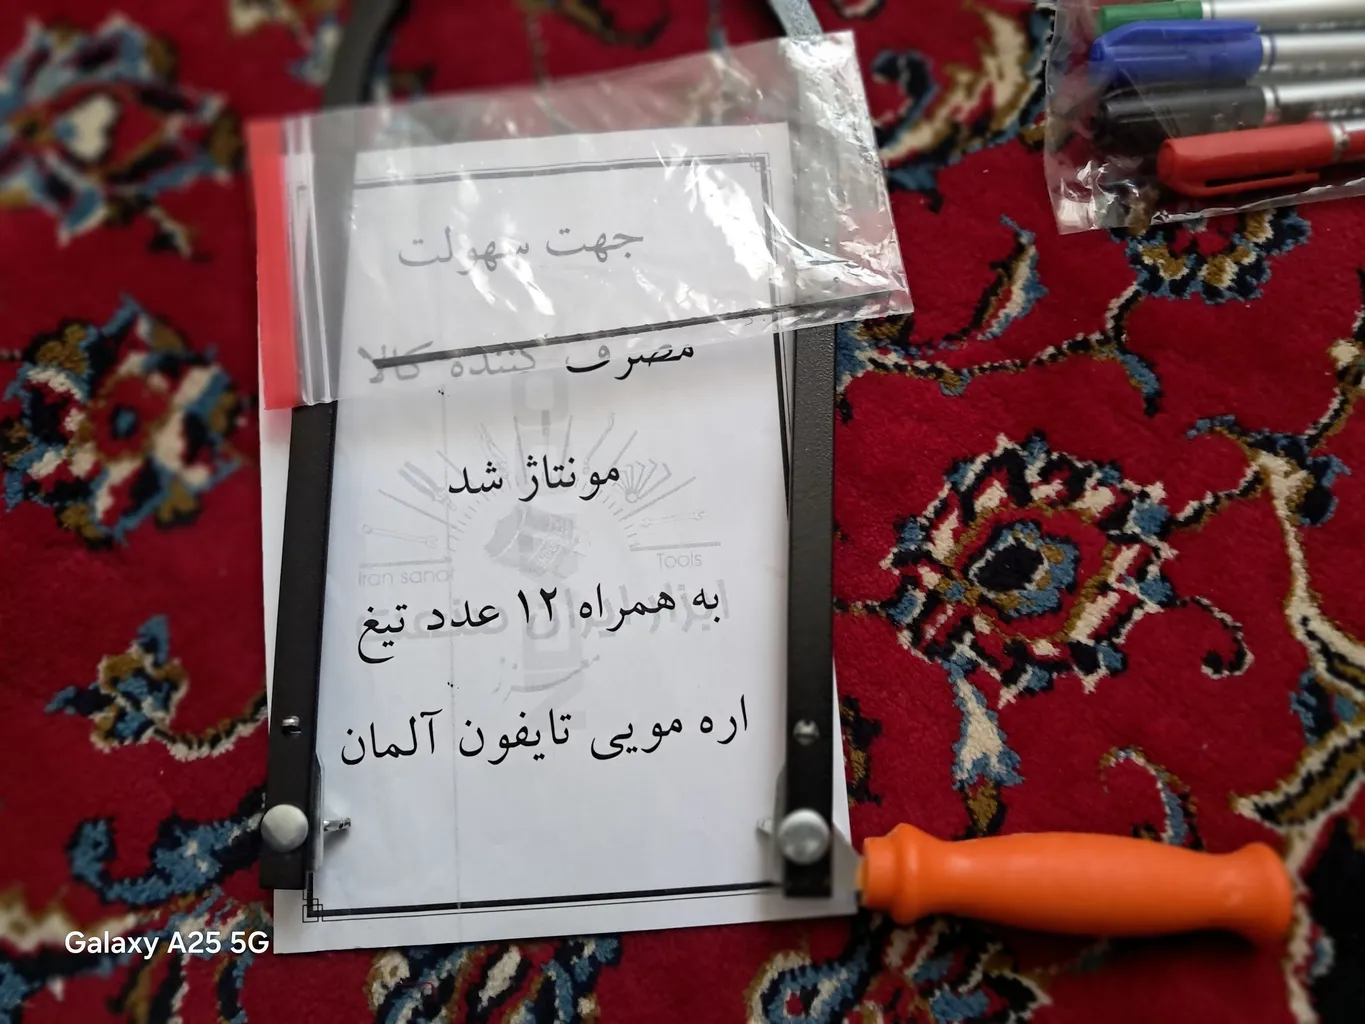 جهت سهولت
مصرف کننده کالا
مونتاژ شد
Iran sanat
Tools
ابزار ایران صنعت
به همراه ۱۲ عدد تیغ
اره مویی تایفون آلمان
Galaxy A25 5G